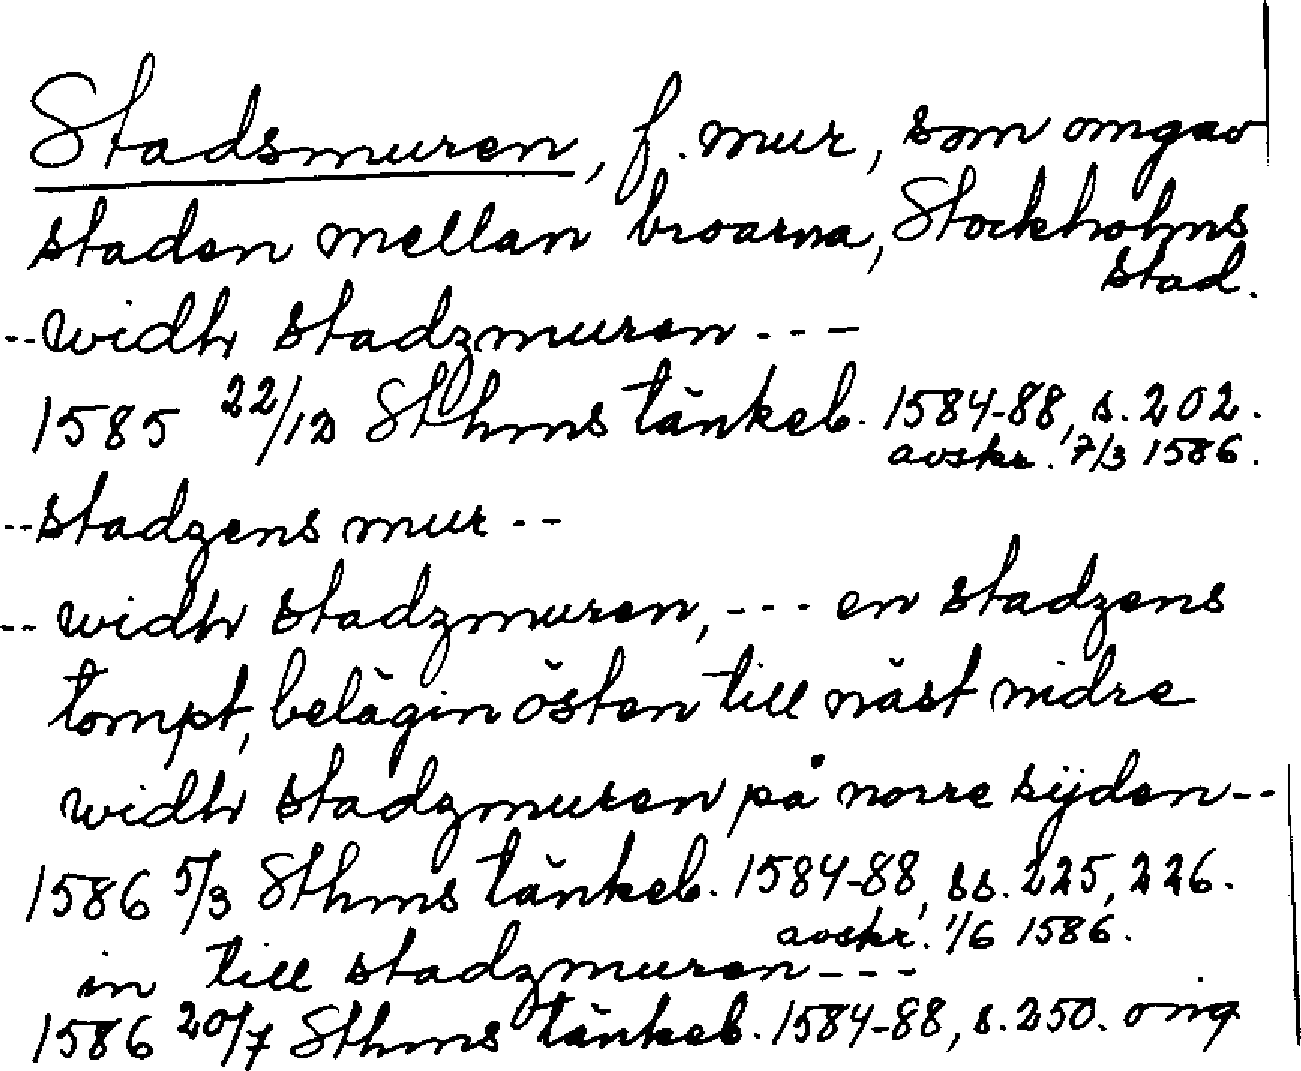 Stadsmuren, f. mur, som omgav
staden mellan broarna, Stockholms
stad.
-- widh stadzmuren ---
1585 22/12 Sthms tänkeb. 1584-88, s. 202.
avskr. 7/3 1586.
-- stadzens mur --
-- widh stadzmuren, --- en stadzens
tompt, belägin östen till näst nidre
widh stadzmuren på norre sijden --
1586 5/3 Sthms tänkeb. 1584-88, ss. 225, 226.
avskr. 1/6 1586.
in till stadzmuren ---
1586 20/7 Sthms tänkeb. 1584-88, s. 250. orig